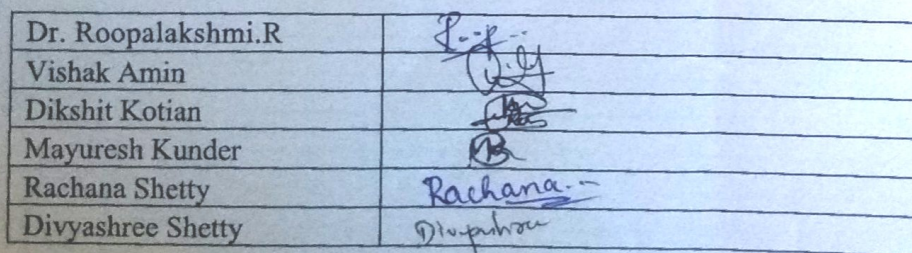 Dr. Roopalakshmi.R
Vishak Amin
Dikshit Kotian
Mayuresh Kunder
Rachana Shetty Rachana
Divyashree Shetty